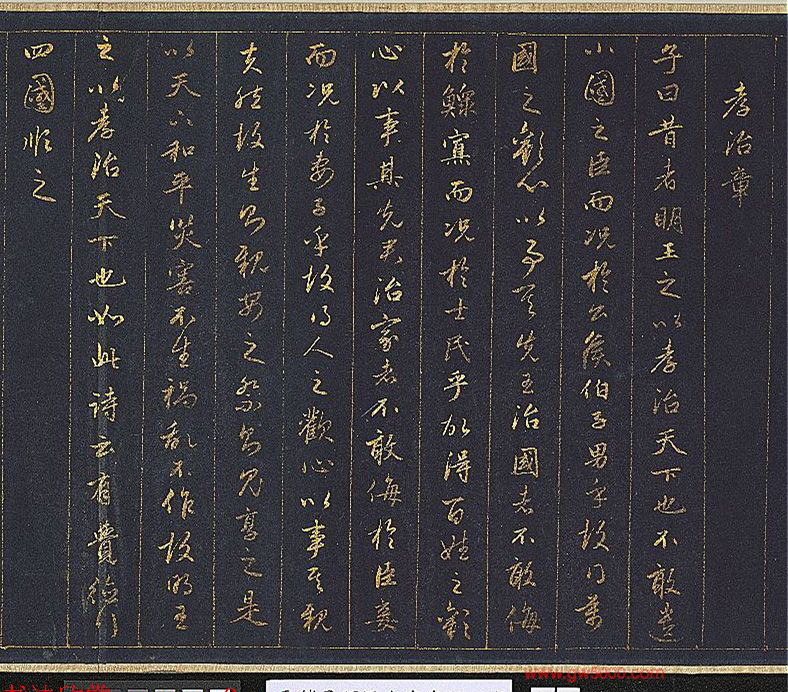 孝治章
子曰昔者明王之以孝治天下也不敢遺
小國之臣而况於公侯伯子男乎故得萬
國之歡心以事其先王治國者不敢侮
於鰥寡而况於士民乎故得百姓之歡
心以事其先君治家者不敢侮於臣妾
而况於妻子乎故得人之歡心以事其親
夫然故生則親安之祭則鬼享之是
以天下和平災害不生禍亂不作故明王
之以孝治天下也如此詩云有覺德行
四國順之
www.gw5000.com